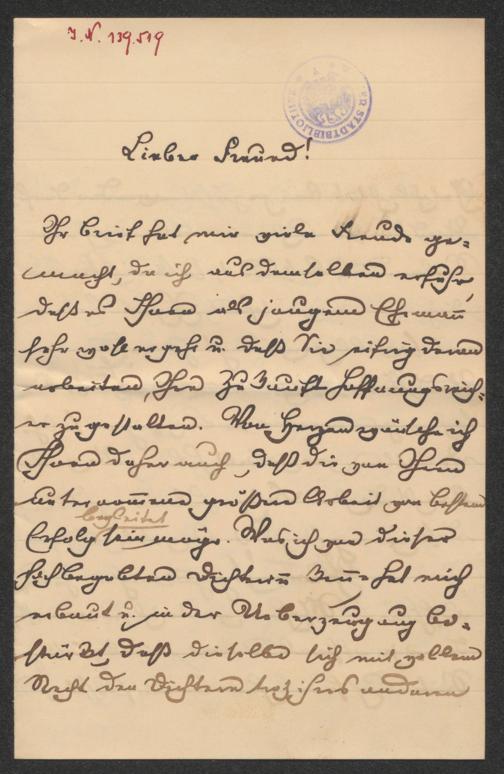 I. N. 139.519
STADTBIBLIOTHEK
Lieber Freund!
Ihr Brief hat mir viele Freude ge-
macht, da ich aus demselben erfuhr,
daß es Ihnen als jungem Ehemann
sehr wohl ergeht u. daß Sie eifrig daran
arbeiten, Ihre Zukunft hoffnungsreich-
er zu gestalten. Von Herzen wünsche ich
Ihnen daher auch, daß die von Ihnen
unternommene größere Arbeit von bestem
begleitet
Erfolg sein möge. Was ich von dieser
hochbegabten Dichterin kenne hat mich
erbaut u. in der Ueberzeugung be-
stärkt, daß dieselbe sich mit vollem
Recht den Dichtern anderen